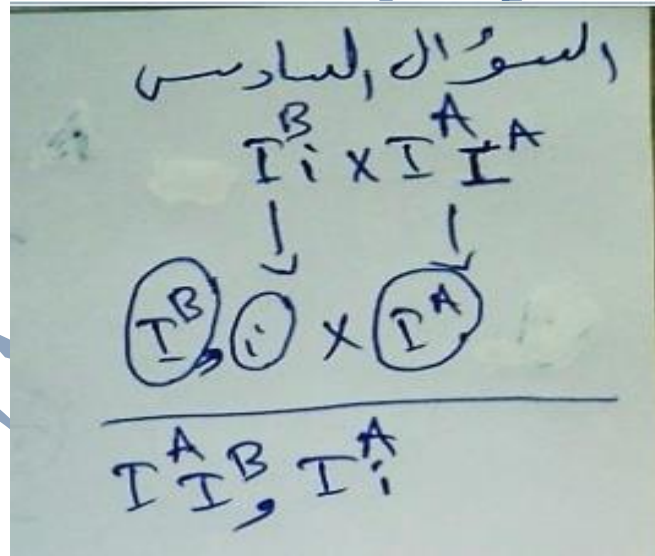 السؤال السادس
I^B i × I^A I^A
I^B , i × I^A
I^A I^B , I^A i